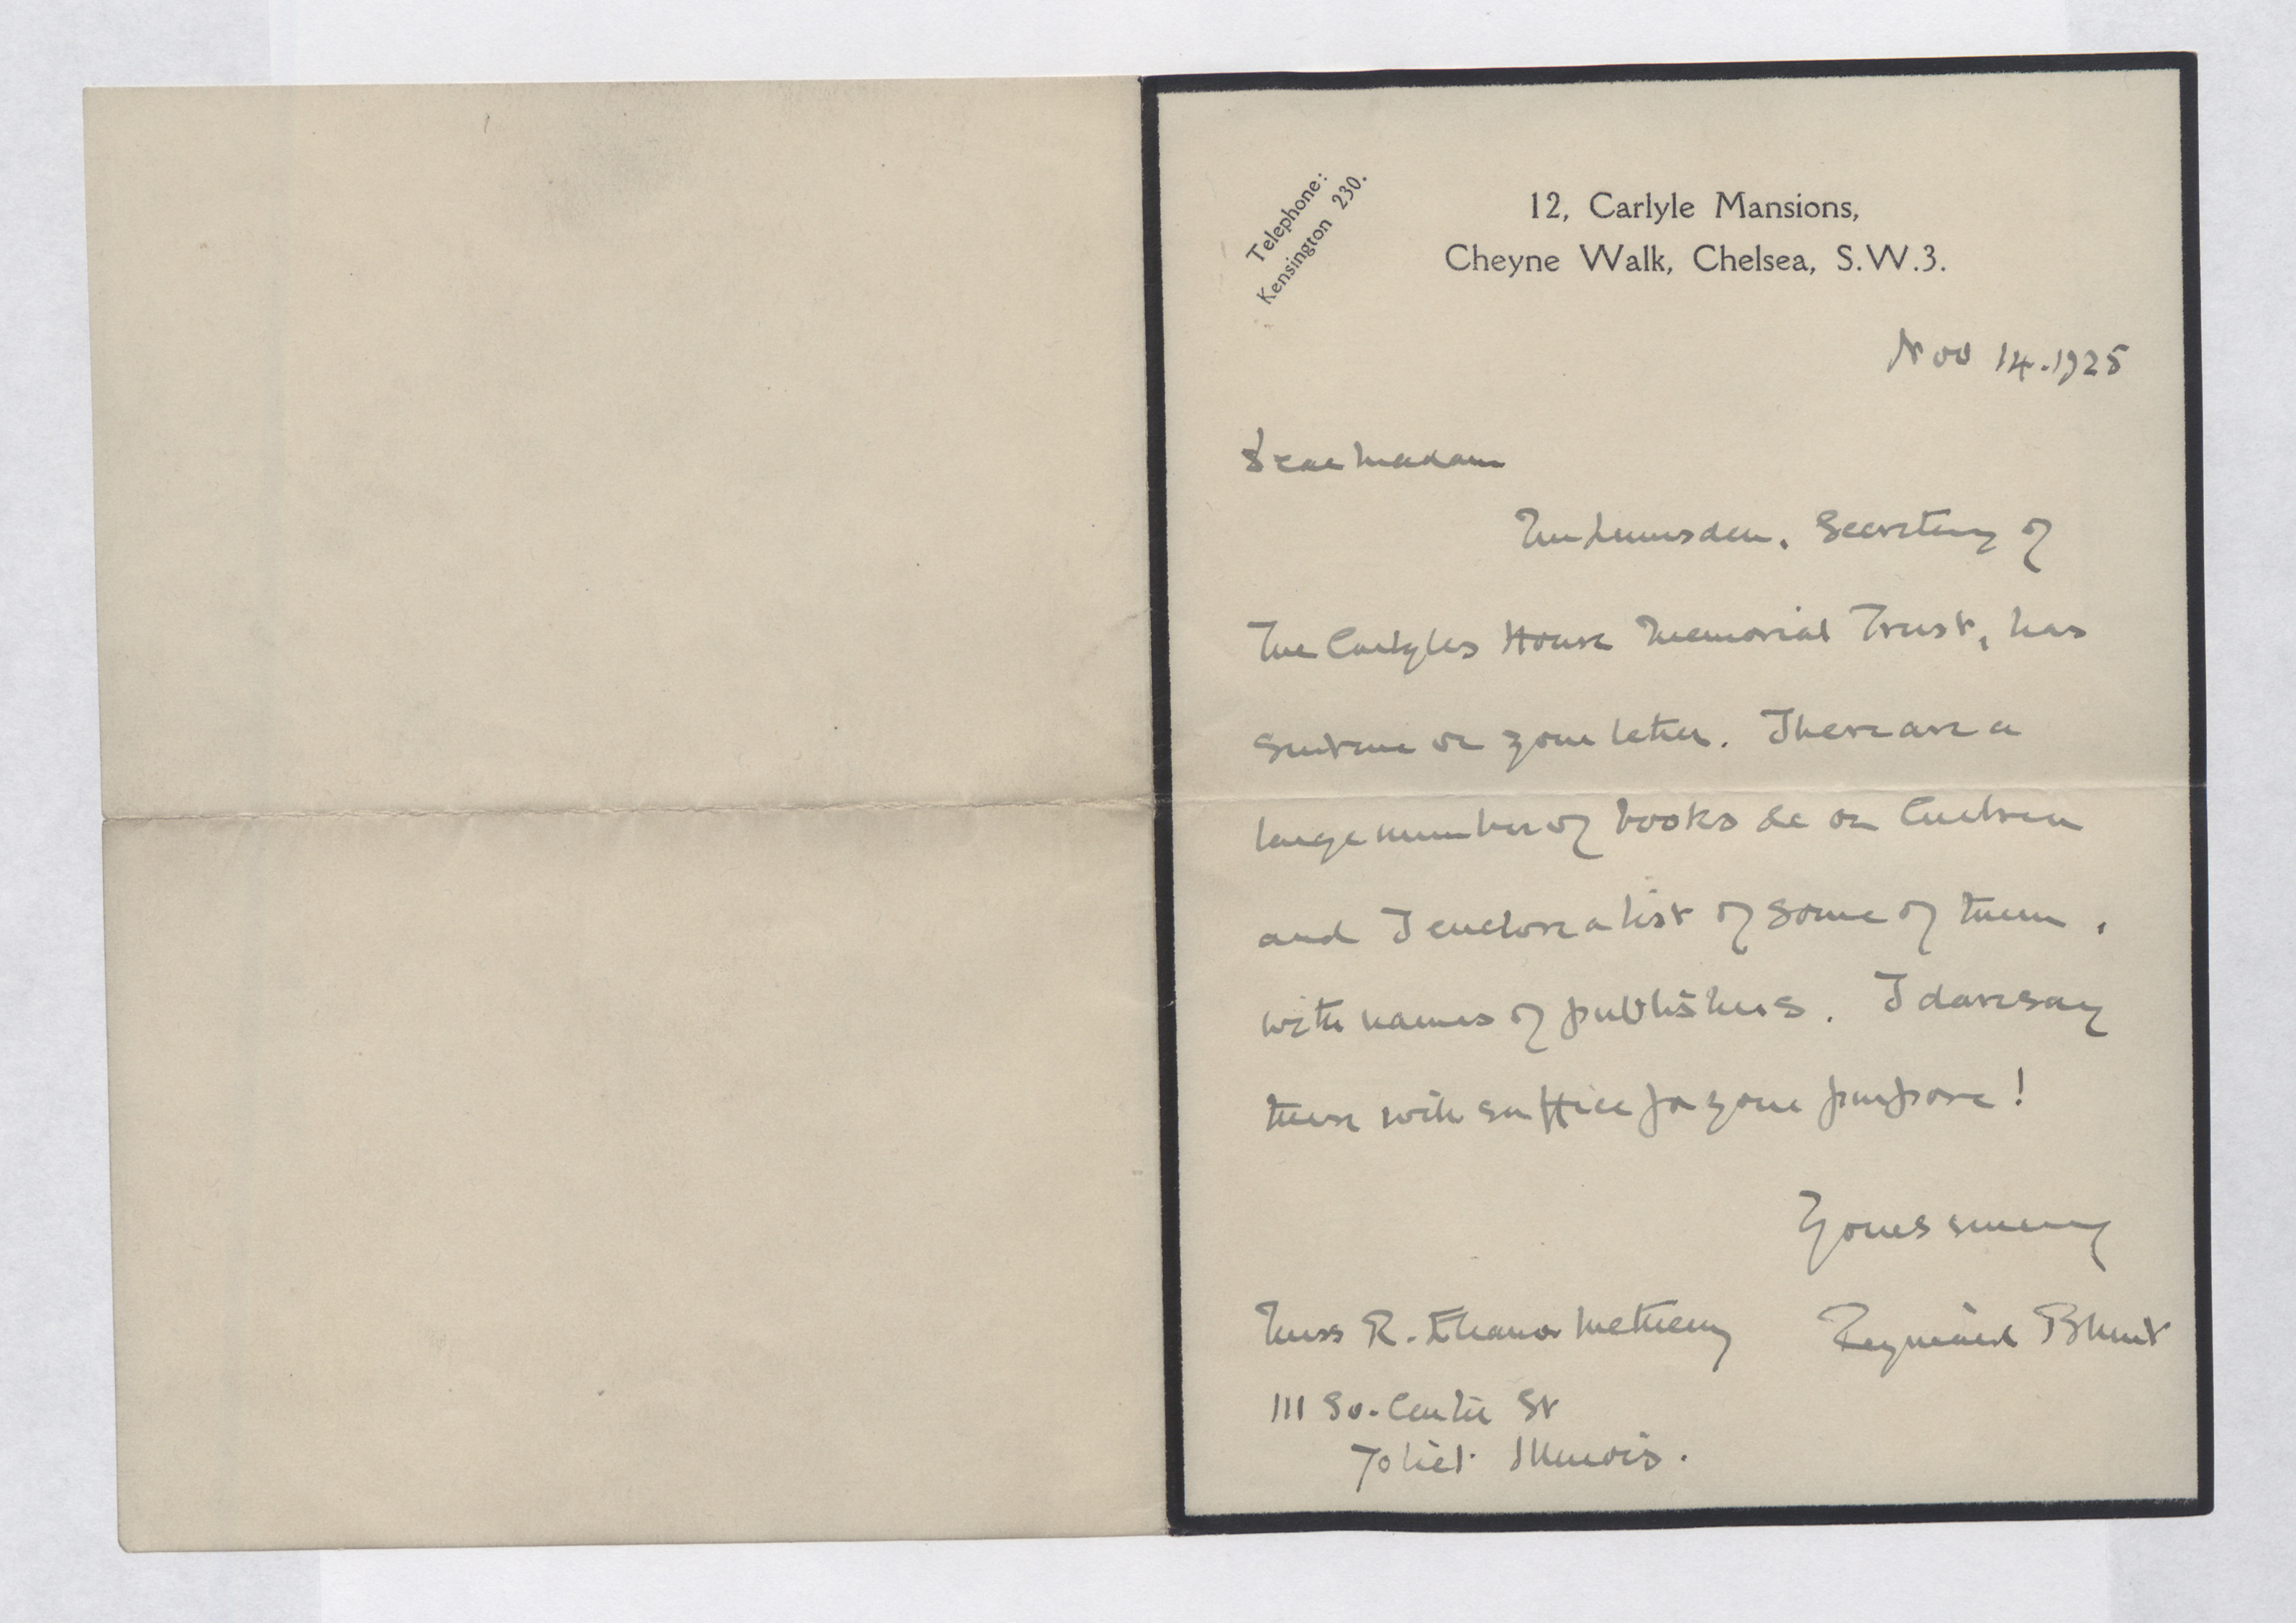 Telephone:
Kensington 230.
12, Carlyle Mansions,
Cheyne Walk, Chelsea, S.W.3.
Nov 14. 1925
Dear Madam
Lumsden, Secretary of
The Carlyles House Memorial Trust, has
sent me on your letter. There are a
large number of books &c on Chelsea
and I enclose a list of some of them,
with names of publishers. I daresay
these will suffice for your purpose!
Yours sincerely
Miss R. Eleanor Metheny
Reginald Blunt
111 So. Center St
Joliet Illinois.